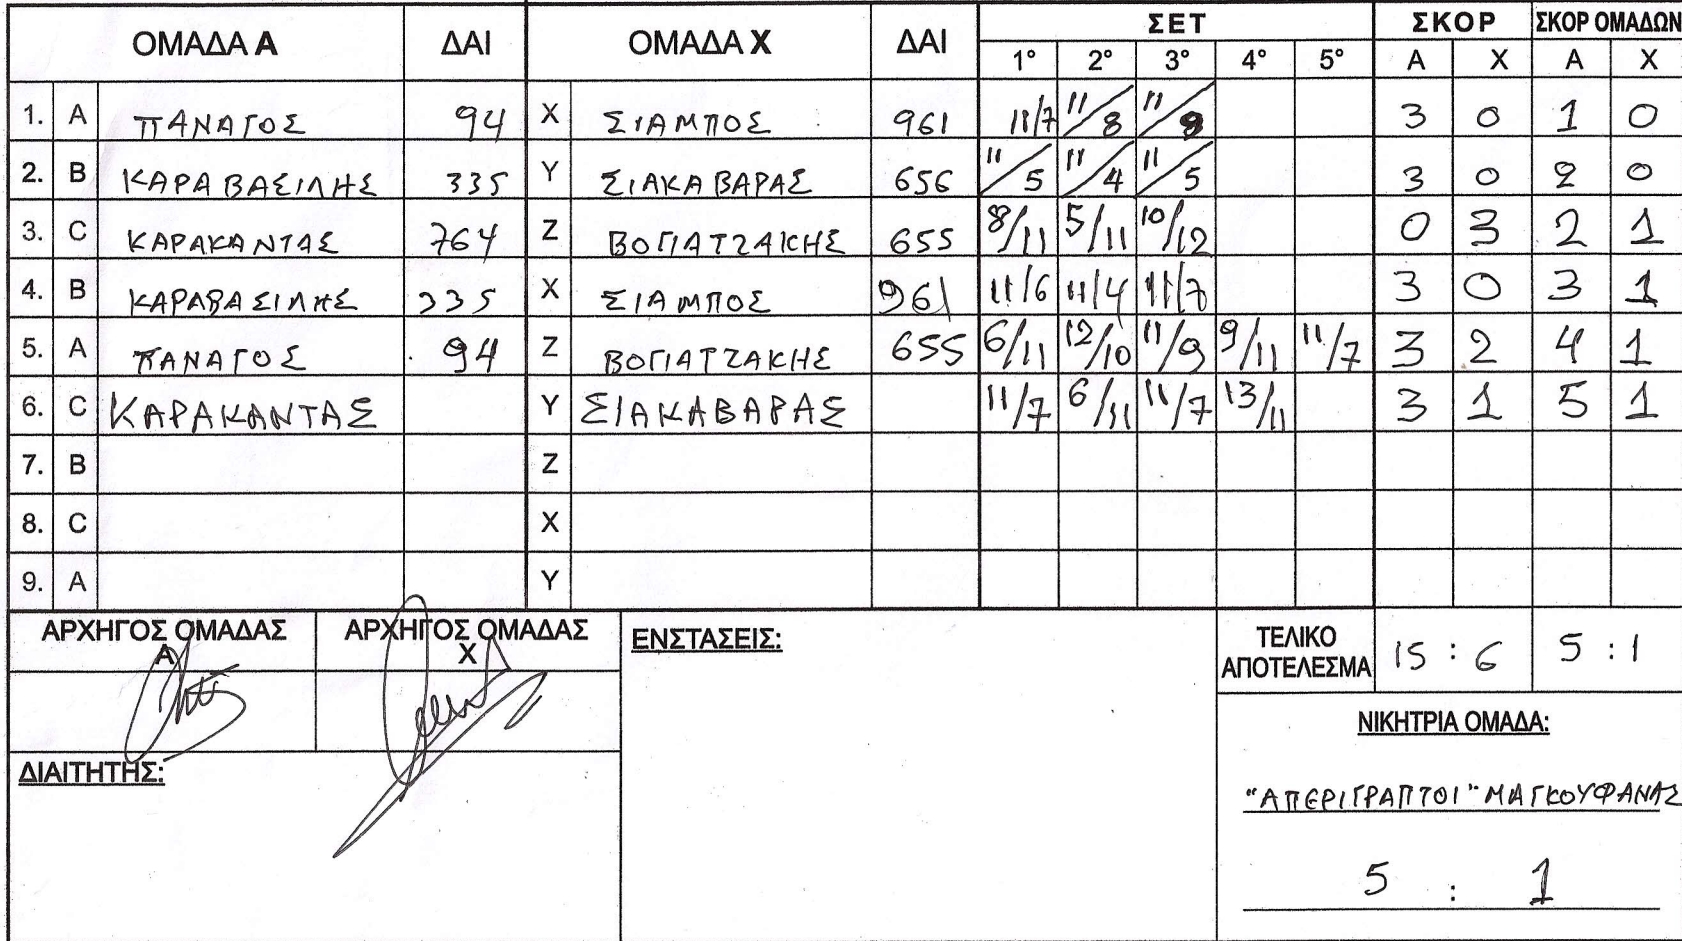 ΟΜΑΔΑ Α ΔΑΙ ΟΜΑΔΑ Χ ΔΑΙ ΣΕΤ ΣΚΟΡ ΣΚΟΡ ΟΜΑΔΩΝ
1° 2° 3° 4° 5° Α Χ Α Χ
1. A ΠΑΝΑΓΟΣ 94 X ΣΙΑΜΠΟΣ 961 11/7 11/8 11/9 3 0 1 0
2. B ΚΑΡΑΒΑΣΙΛΗΣ 335 Y ΣΙΑΚΑΒΑΡΑΣ 656 11/5 11/4 11/5 3 0 2 0
3. C ΚΑΡΑΚΑΝΤΑΣ 764 Z ΒΟΓΙΑΤΖΑΚΗΣ 655 8/11 5/11 10/12 0 3 2 1
4. B ΚΑΡΑΒΑΣΙΛΗΣ 335 X ΣΙΑΜΠΟΣ 961 11/6 11/4 11/7 3 0 3 1
5. A ΠΑΝΑΓΟΣ 94 Z ΒΟΓΙΑΤΖΑΚΗΣ 655 6/11 12/10 11/9 9/11 11/7 3 2 4 1
6. C ΚΑΡΑΚΑΝΤΑΣ Y ΣΙΑΚΑΒΑΡΑΣ 11/7 6/11 11/7 13/11 3 1 5 1
7. B Z
8. C X
9. A Y
ΑΡΧΗΓΟΣ ΟΜΑΔΑΣ Α
ΑΡΧΗΓΟΣ ΟΜΑΔΑΣ Χ
ΕΝΣΤΑΣΕΙΣ:
ΤΕΛΙΚΟ ΑΠΟΤΕΛΕΣΜΑ 15 : 6 5 : 1
ΝΙΚΗΤΡΙΑ ΟΜΑΔΑ:
ΔΙΑΙΤΗΤΗΣ:
"ΑΠΕΡΙΓΡΑΠΤΟΙ" ΜΑΓΚΟΥΦΑΝΑΣ
5 : 1